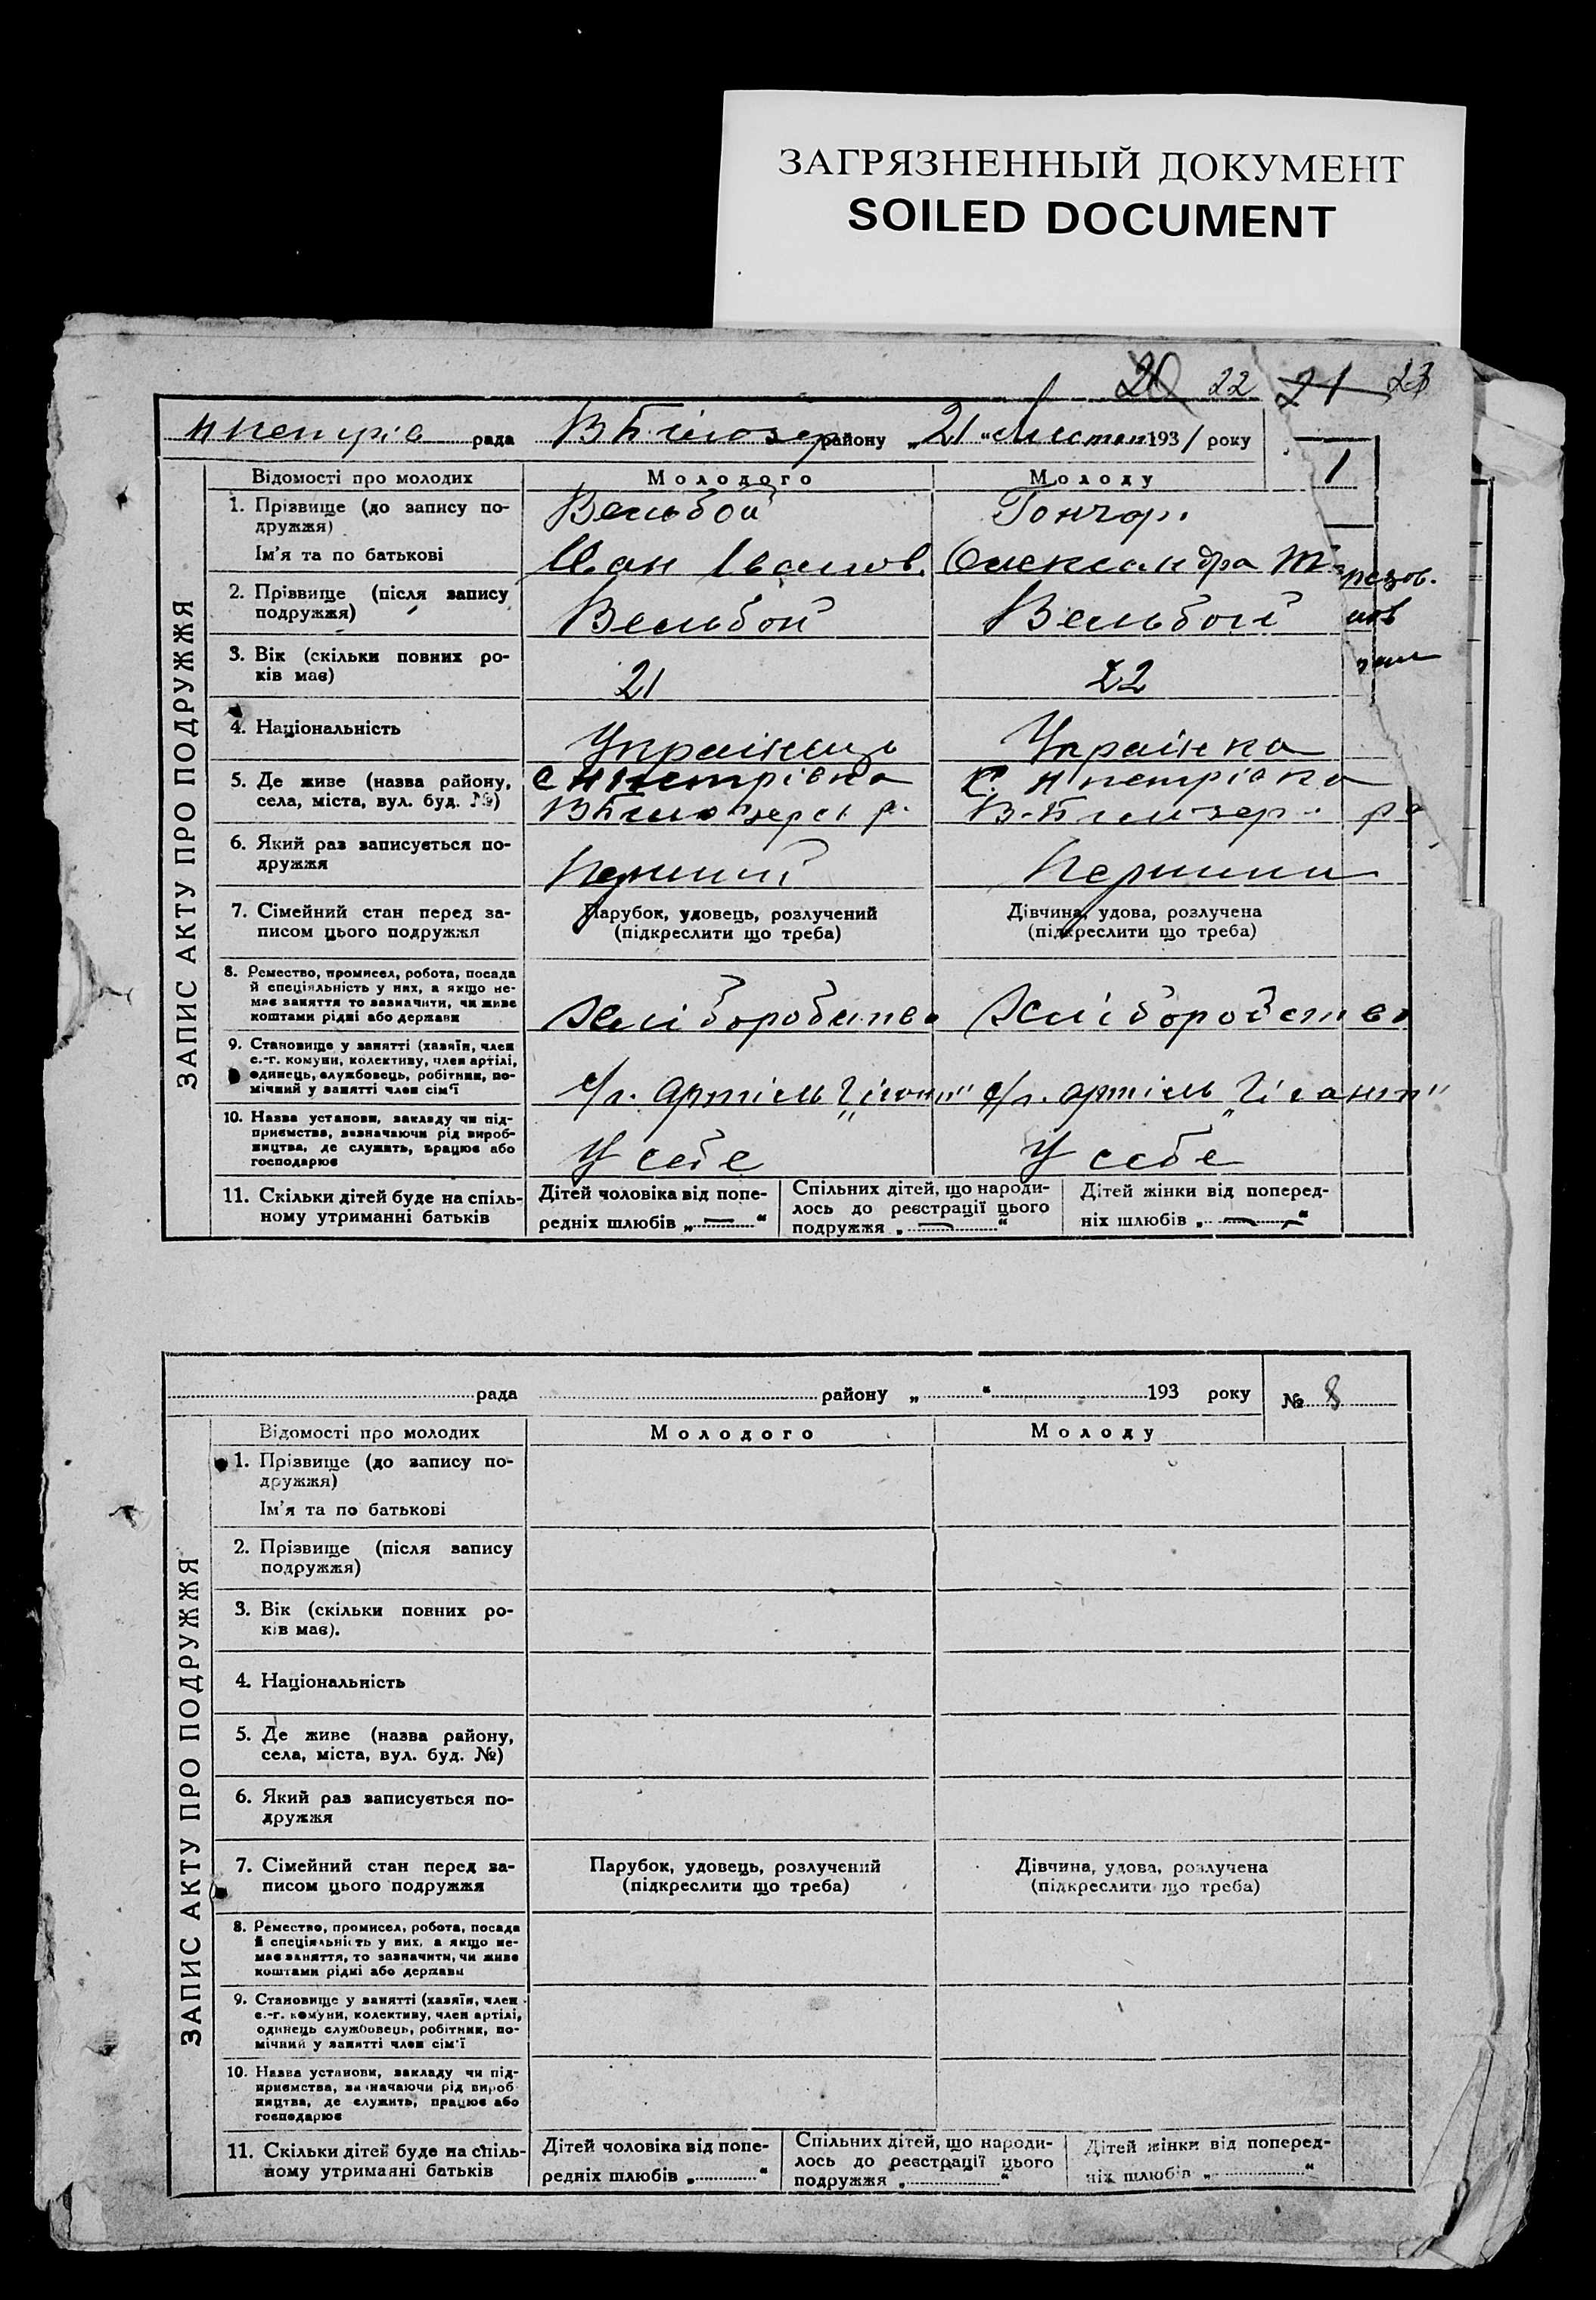 ЗАГРЯЗНЕННЫЙ ДОКУМЕНТ
SOILED DOCUMENT
20 22 21 23
Нпетрів рада ВБілозер району „21“ Листоп 1931 року
1
ЗАПИС АКТУ ПРО ПОДРУЖЖЯ
Відомості про молодих Молодого Молоду
1. Прізвище (до запису по-
дружжя)
Вельбой Гончар.
Ім'я та по батькові Іван Іванов. Олександра
2. Прізвище (після запису
подружжя)
Вельбой Вельбой
3. Вік (скільки повних ро-
ків має)
21 22
4. Національність Українець Українка
5. Де живе (назва району,
села, міста, вул. буд. №)
с Нпетрівка с. Нпетрівка
ВБілозерсь р. В-Білозер. р
6. Який раз записується по-
дружжя
Перший Перший
7. Сімейний стан перед за-
писом цього подружжя
Парубок, удовець, розлучений
(підкреслити що треба)
Дівчина, удова, розлучена
(підкреслити що треба)
8. Ремество, промисел, робота, посада
й спеціяльність у них, а якщо не-
має заняття то зазначити, чи живе
коштами рідні або держави
Хліборобство Хліборобство
9. Становище у занятті (хазяїн, член
с.-г. комуни, колективу, член артілі,
одинець, службовець, робітник, по-
мічний у занятті член сім'ї
с/г. артіль „Гігант“ с/г. артіль „Гігант“
10. Назва установи, закладу чи під-
приємства, зазначаючи рід вироб-
ництва, де служать, працює або
господарює
У себе У себе
11. Скільки дітей буде на спіль-
ному утриманні батьків
Дітей чоловіка від попе-
редніх шлюбів „—“
Спільних дітей, що народи-
лось до реєстрації цього
подружжя „—“
Дітей жінки від поперед-
ніх шлюбів „—“
рада району „ “ 193 року № 8
ЗАПИС АКТУ ПРО ПОДРУЖЖЯ
Відомості про молодих Молодого Молоду
1. Прізвище (до запису по-
дружжя)
Ім'я та по батькові
2. Прізвище (після запису
подружжя)
3. Вік (скільки повних ро-
ків має).
4. Національність
5. Де живе (назва району,
села, міста, вул. буд. №)
6. Який раз записується по-
дружжя
7. Сімейний стан перед за-
писом цього подружжя
Парубок, удовець, розлучений
(підкреслити що треба)
Дівчина, удова, розлучена
(підкреслити що треба)
8. Ремество, промисел, робота, посада
й спеціяльність у них, а якщо не-
має заняття, то зазначити, чи живе
коштами рідні або держави
9. Становище у занятті (хазяїн, член
с.-г. комуни, колективу, член артілі,
одинець службовець, робітник, по-
мічний у занятті член сім'ї
10. Назва установи, закладу чи під-
приємства, зазначаючи рід вироб-
ництва, де служить, працює або
господарює
11. Скільки дітей буде на спіль-
ному утриманні батьків
Дітей чоловіка від попе-
редніх шлюбів „ “
Спільних дітей, що народи-
лось до реєстрації цього
подружжя „ “
Дітей жінки від поперед-
ніх шлюбів „ “